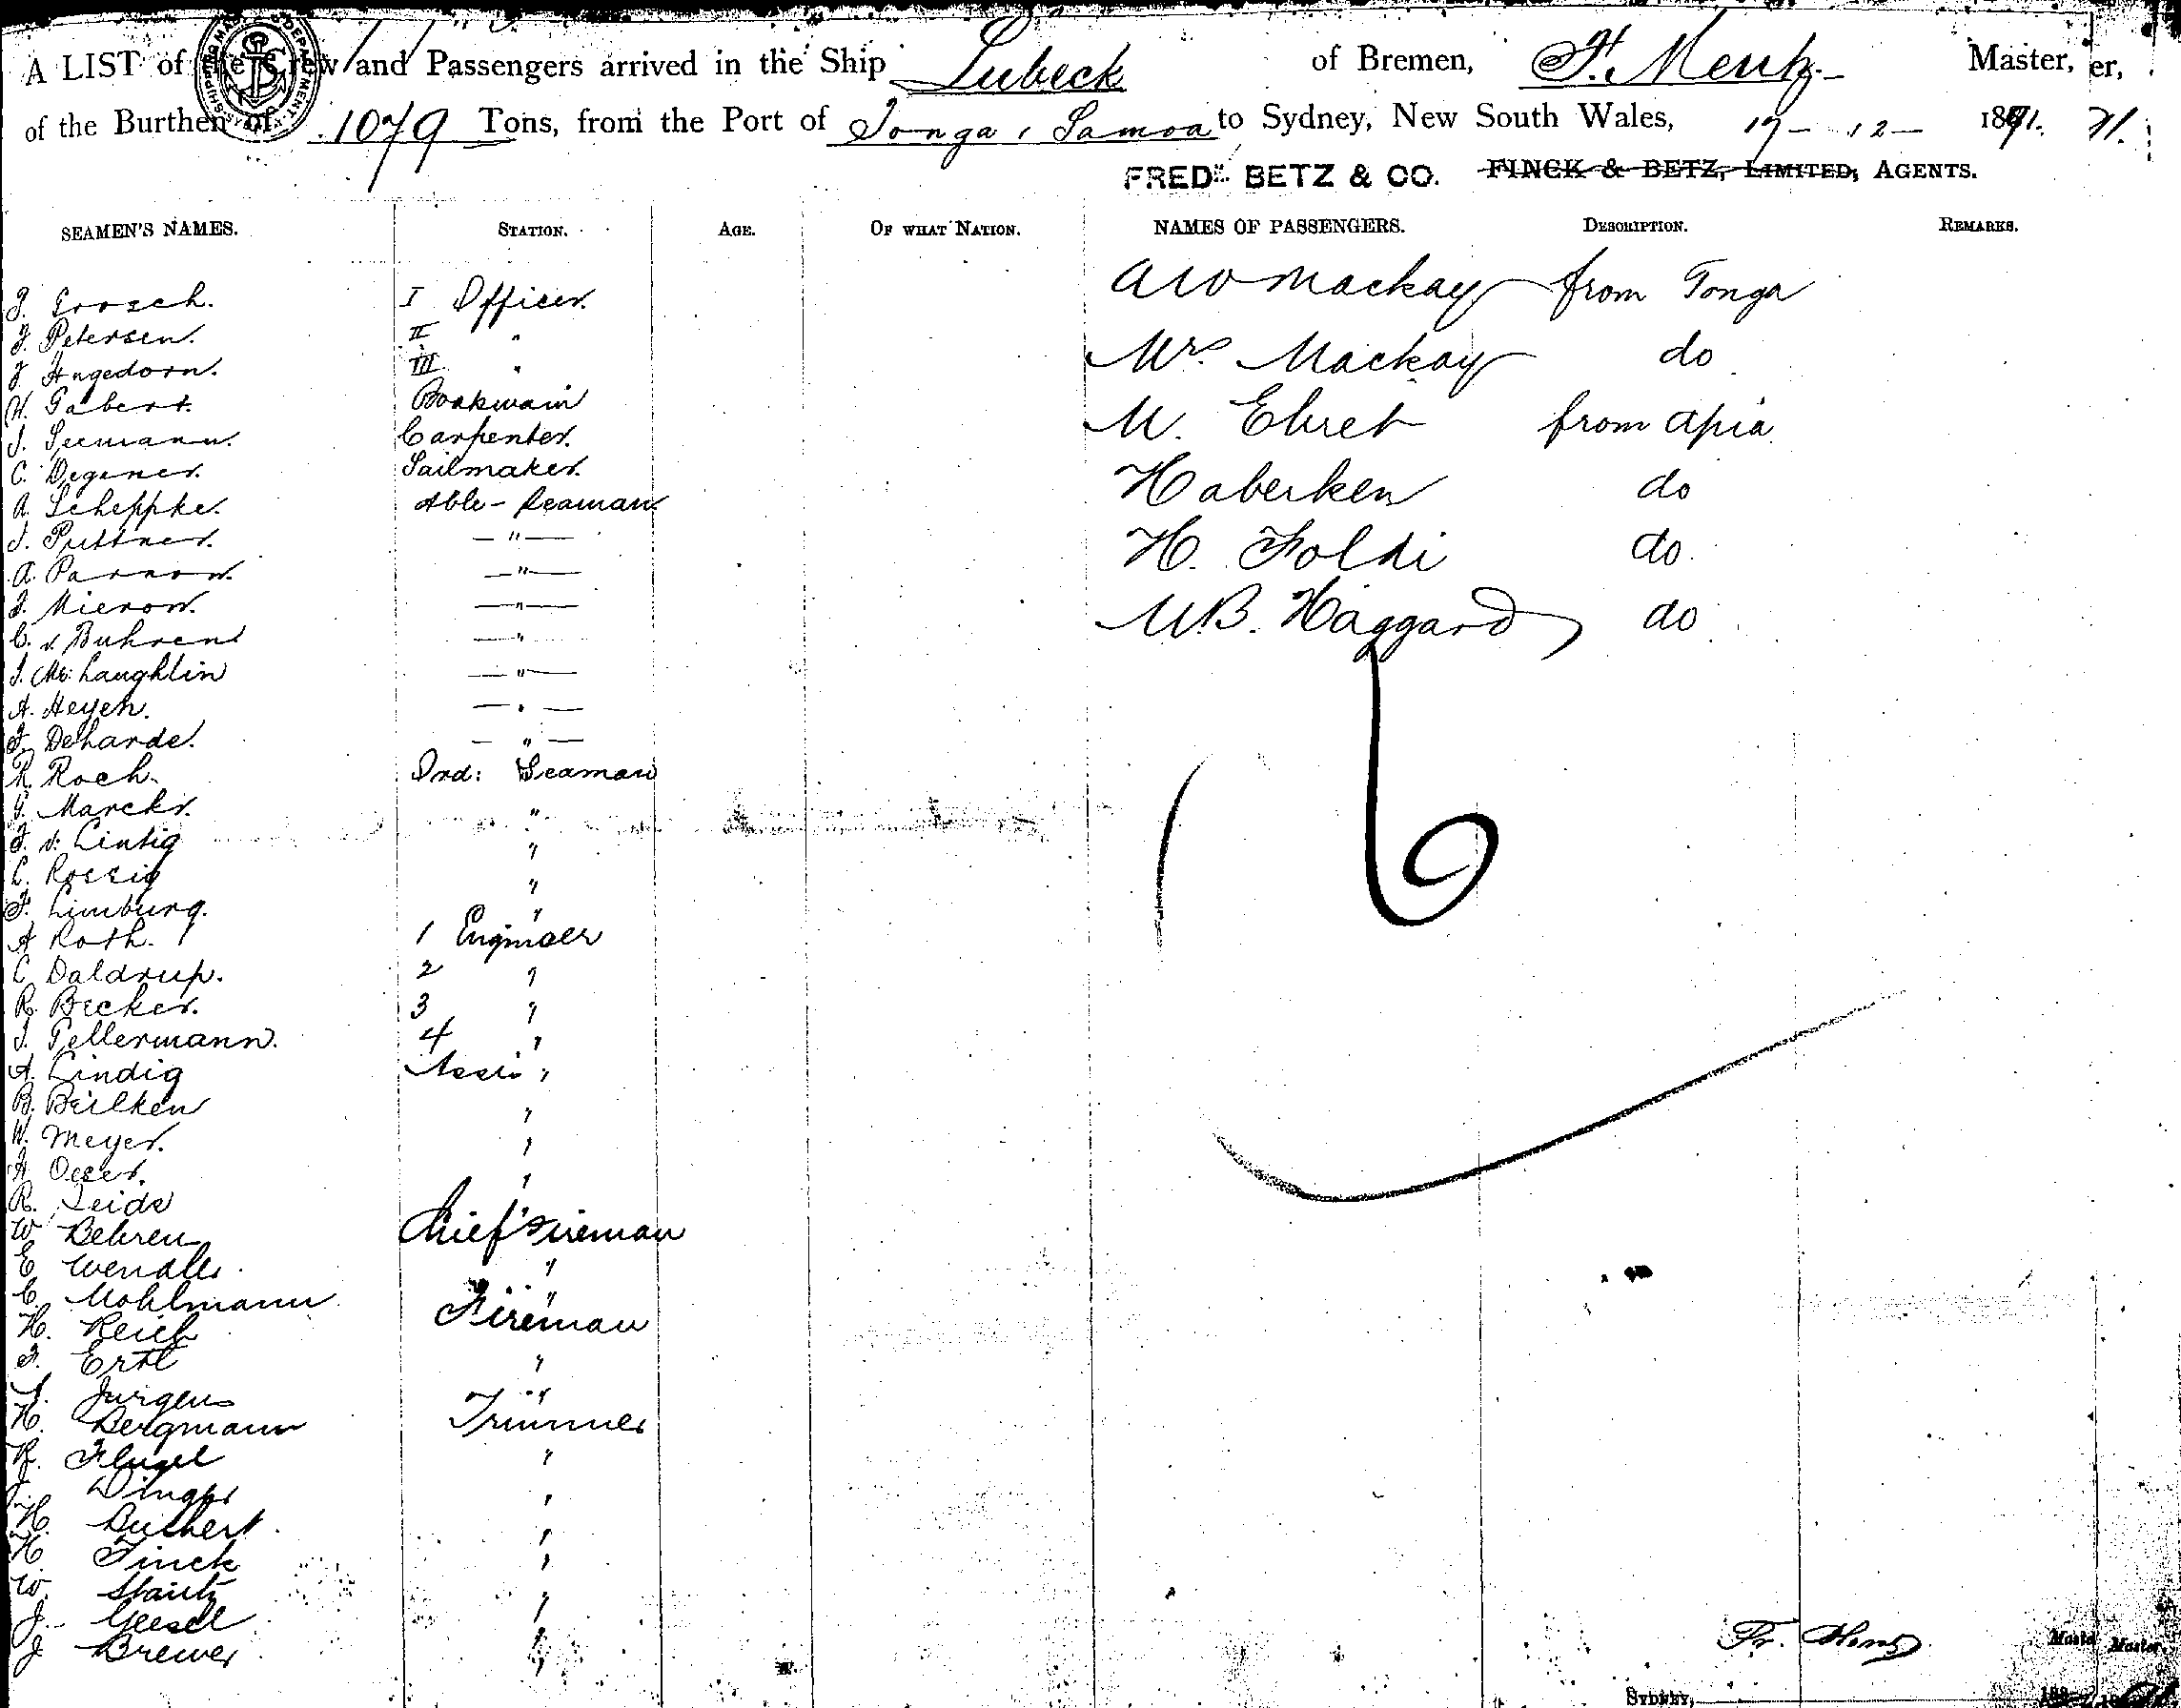 A LIST of the Crew and Passengers arrived in the Ship Lubeck of Bremen, F. Mentz Master,
of the Burthen of 1079 Tons, from the Port of Tonga, Samoa to Sydney, New South Wales, 17-12-1891. 91.
FREDK. BETZ & CO. FINCK & BETZ, LIMITED, AGENTS.
SEAMEN'S NAMES. STATION. AGE. OF WHAT NATION. NAMES OF PASSENGERS. DESCRIPTION. REMARKS.
Grosch. I Officer. A W Mackay from Tonga
Petersen. II "
Hagedorn. III " Mrs. Mackay do
H. Gabert. Bootswain
M. Ehret from Apia
J. Seemann. Carpenter.
C. Degener. Sailmaker. Haberken do
A. Scheppke. Able-Seaman
J. Puttner. — " — H. Foldi do
A. Parnow. — " —
Mierow. — " — M.B. Haggard do
C. v. Buhren — " —
J. Mc. Laughlin — " —
A. Heyen. — " —
F. Deharde. — " —
R. Roch. Ord: Seaman
Marcks. "
F. v. Lintig "
C. Rossig "
F. Limburg. "
6
A Roth. 1 Engineer
C Daldrup. 2 "
R. Becker. 3 "
J. Tellermann. 4 "
A. Lindig Assis "
B. Beilken "
W. Meyer. "
Oeser. "
R. Seide
W Behren Chief Fireman
E Wendler "
C. Mohlmann "
H. Reich Fireman
F. Ertl "
Jurgens "
H. Bergmann Trimmer
R. Flugel "
"
H. "
H Finck "
W. "
J. Geesel "
J Brewer "
Fr. Mentz Master Master
SYDNEY,